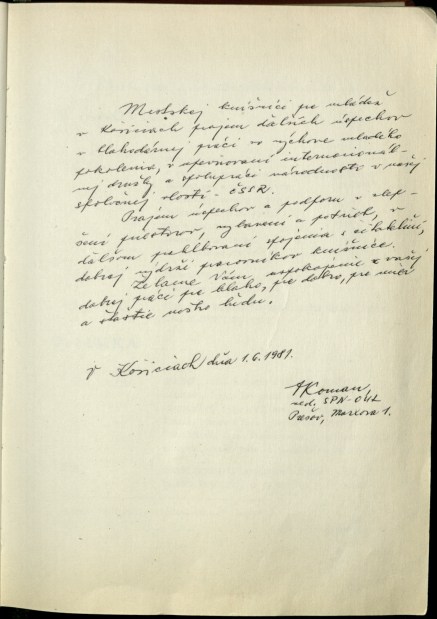 Mestskej knižnici pre mládež
v Košiciach prajem ďalších úspechov
v blahodarnej práci vo výchove mladého
pokolenia, v upevňovaní internacionál-
nej družby a spolupráci národností v našej
spoločnej vlasti - ČSSR.
Prajem úspechov a podporu v zlep-
šení priestorov, vybavení a potrieb, v
ďalšom prehlbovaní spojenia s čitateľmi,
dobrej výdrži pracovníkov knižnice.
Želáme Vám uspokojenie z vašej
dobrej práce pre blaho, pre dobro, pre mier
a šťastie nášho ľudu.
V Košiciach dňa 1.6.1981.
AKoman,
red. SPN-OUL
Prešov, Marxova 1.